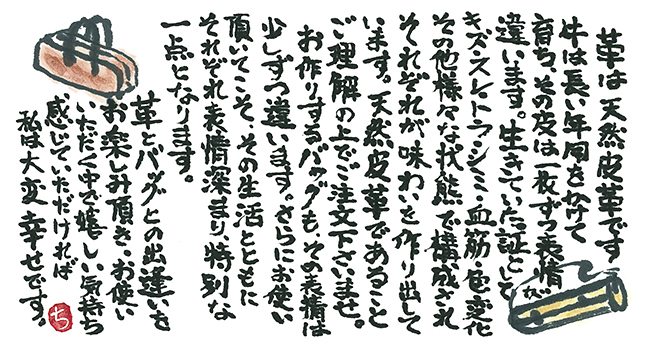 革は天然皮革です
牛は長い年間をかけて
育ち、その皮は一枚ずつ表情が
違います。生きていた証として
キズ・スレ・トラ・シミ・血筋・色変化
その他様々な状態で構成され
それぞれが味わいを作り出して
います。天然皮革であること
ご理解の上でご注文下さいませ。
お作りするバッグも、その表情は
少しずつ違います。さらにお使い
頂いてこそ、その生活とともに
それぞれ表情深まり、特別な
一点となります。
革とバッグとの出逢いを
お楽しみ頂き、お使い
いただく中で嬉しい気持ち
感じていただければ
私は大変幸せです。
ち